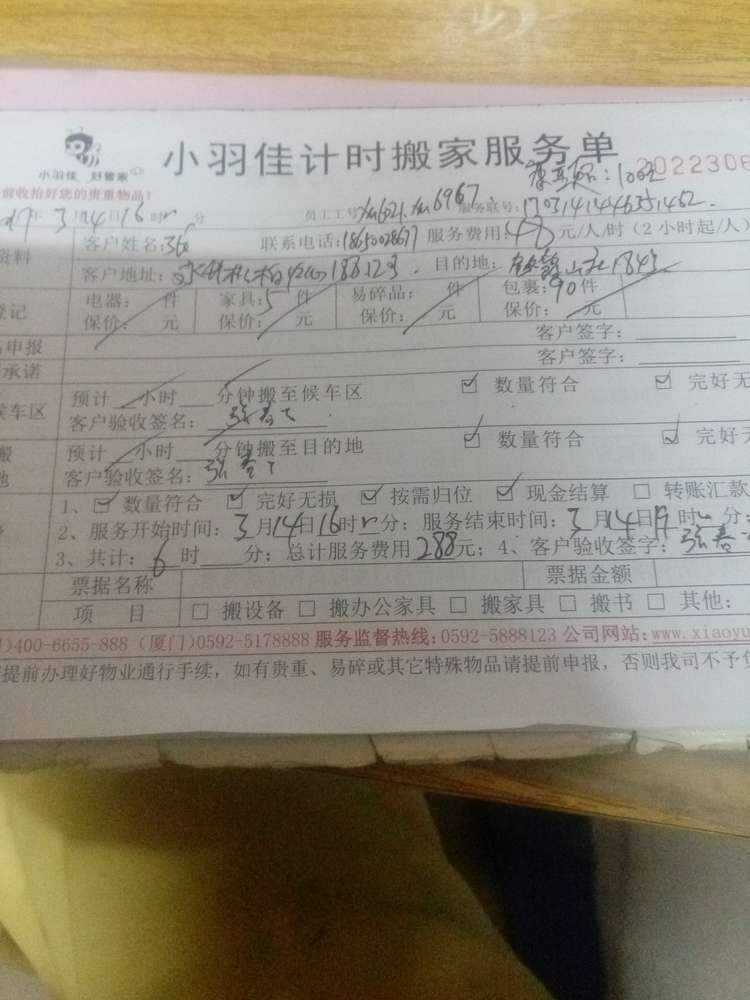 小羽佳 好管家
小羽佳计时搬家服务单 2022306
前收拾好您的贵重物品! :100元
年3月14日16时 分 员工工号: 6021. 6967 服务联号:
资料 客户姓名:张 联系电话:18650028677 服务费用:48元/人/时(2小时起/人)
客户地址: 目的地:
登记 电器: 件 家具:5件 易碎品: 件 包裹:90件
保价: 元 保价: 元 保价: 元 保价: 元
申报 客户签字:
承诺 客户签字:
候车区 预计 小时 分钟搬至候车区 ☑ 数量符合 ☑ 完好无
客户验收签名:张春
搬 预计 小时 分钟搬至目的地 ☑ 数量符合 ☑ 完好无
地 客户验收签名:张春
1、☑ 数量符合 ☑ 完好无损 ☑ 按需归位 ☑ 现金结算 □ 转账汇款
2、服务开始时间:3月14日16时 分;服务结束时间:3月14日19时 分;
3、共计:6时 分;总计服务费用288元;4、客户验收签字:张春
票据名称 票据金额
项 目 □ 搬设备 □ 搬办公家具 □ 搬家具 □ 搬书 □ 其他:
)400-6655-888 (厦门)0592-5178888 服务监督热线:0592-5888123 公司网站:www.xiaoyu
提前办理好物业通行手续,如有贵重、易碎或其它特殊物品请提前申报,否则我司不予